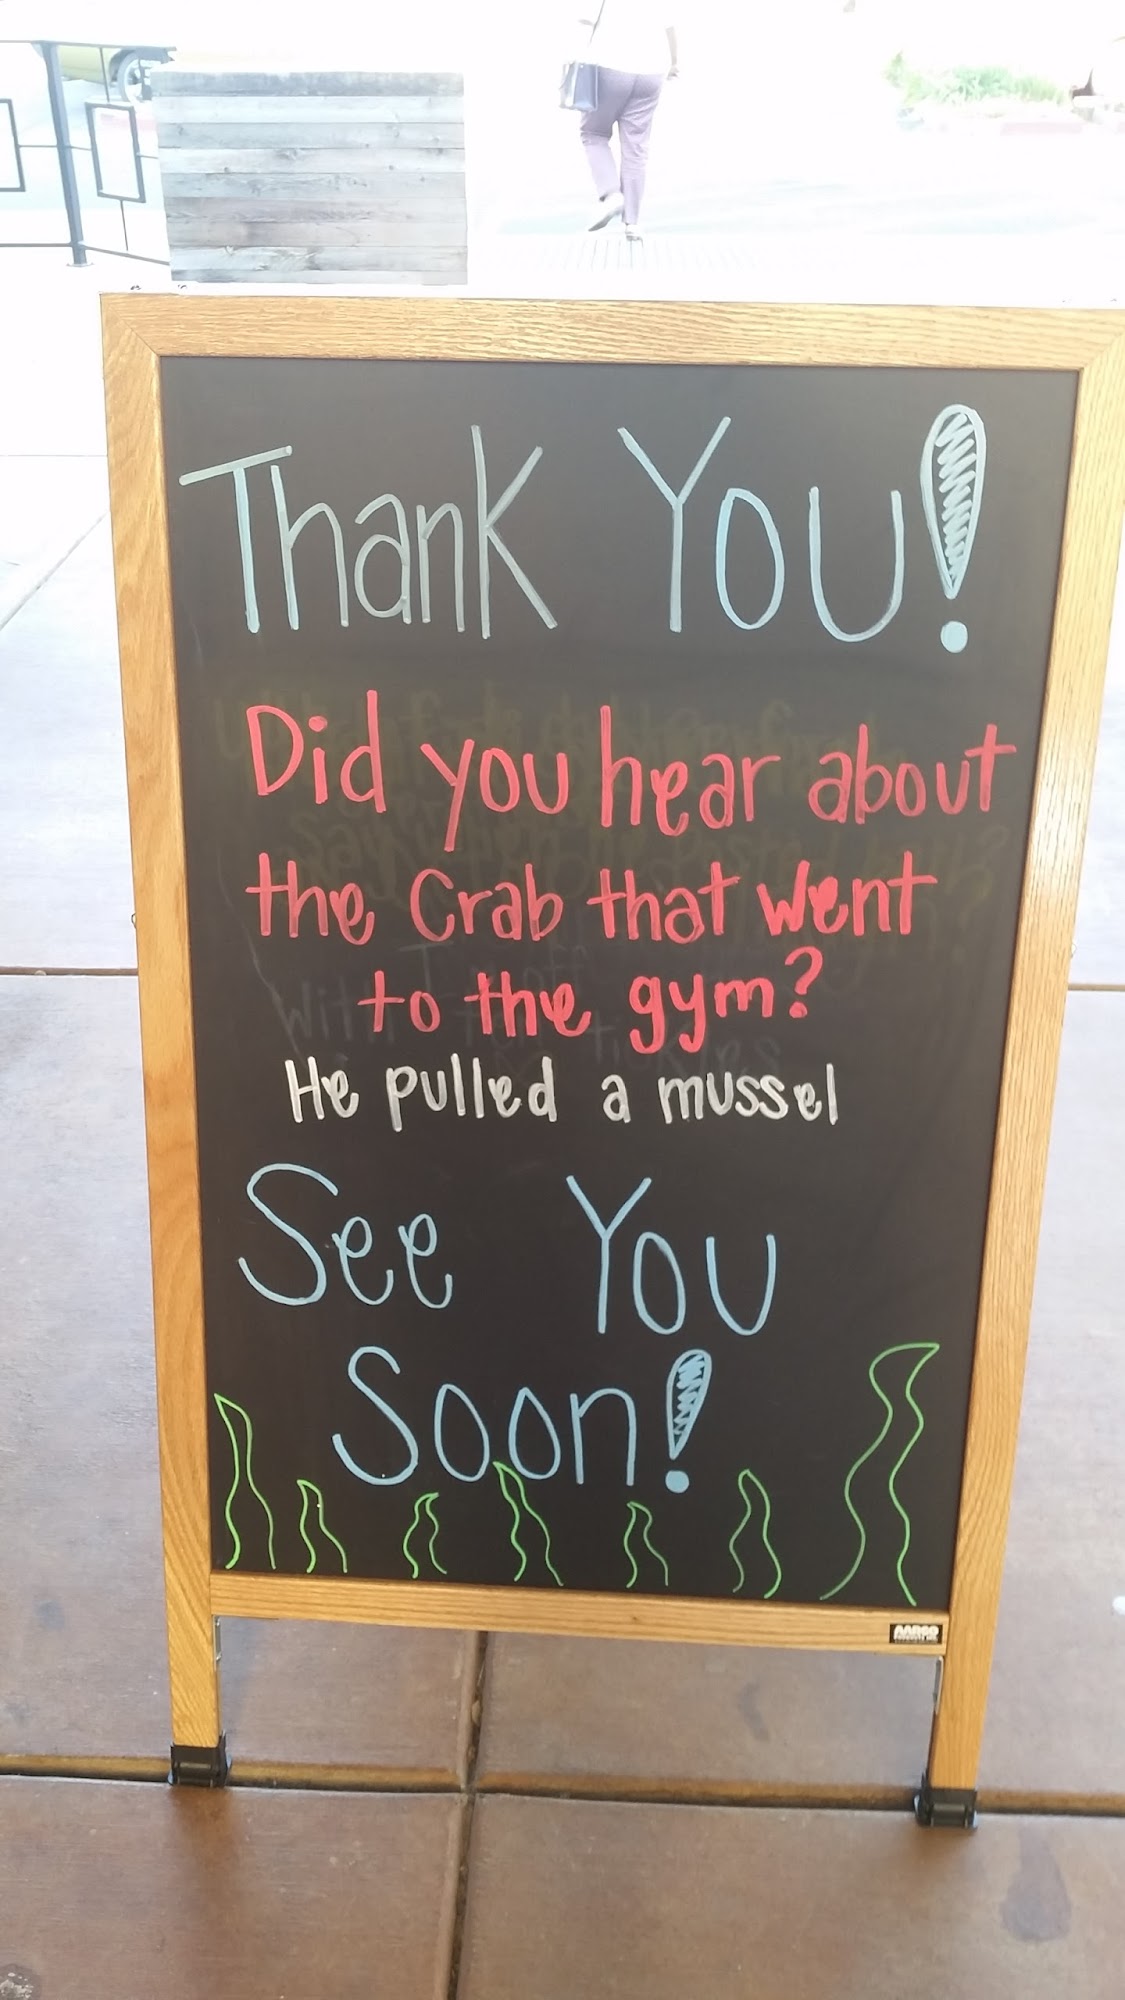 Thank You!
Did you hear about
the Crab that went
to the gym?
He pulled a mussel
See You
Soon!
AARCO